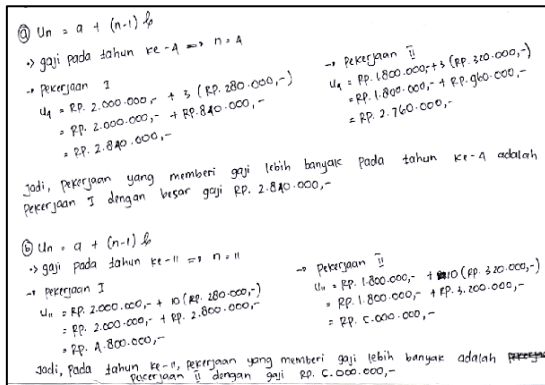 a Un = a + (n-1) b
•> gaji pada tahun ke-4 => n = 4
→ pekerjaan I
U4 = RP. 2.000.000,- + 3 (RP. 280.000,-)
= RP. 2.000.000,- + RP. 840.000,-
= RP. 2.840.000,-
→ pekerjaan II
U4 = RP. 1.800.000,- + 3 (RP. 320.000,-)
= RP. 1.800.000,- + RP. 960.000,-
= RP. 2.760.000,-
Jadi, pekerjaan yang memberi gaji lebih banyak pada tahun ke-4 adalah
pekerjaan I dengan besar gaji RP. 2.840.000,-
b Un = a + (n-1) b
•> gaji pada tahun ke-11 => n = 11
→ pekerjaan I
U11 = RP. 2.000.000,- + 10 (RP. 280.000,-)
= RP. 2.000.000,- + RP. 2.800.000,-
= RP. 4.800.000,-
→ pekerjaan II
U11 = RP. 1.800.000,- + 10 (RP. 320.000,-)
= RP. 1.800.000,- + RP. 3.200.000,-
= RP. 5.000.000,-
Jadi, pada tahun ke-11, pekerjaan yang memberi gaji lebih banyak adalah
pekerjaan II dengan gaji RP. 5.000.000,-